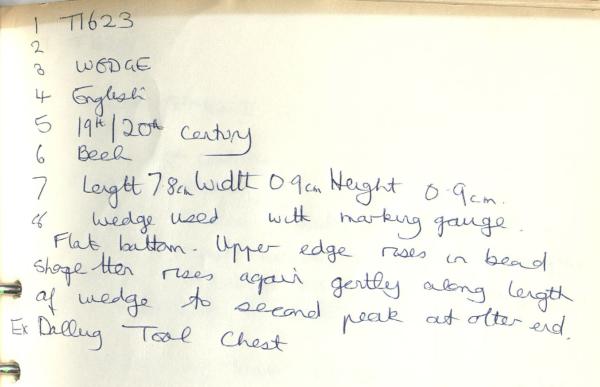 1 T1623
2
3 WEDGE
4 English
5 19th/20th century
6 Beech
7 Length 7.8cm Width 0.9cm Height 0.9cm.
8 wedge used with marking gauge.
Flat bottom. Upper edge rises in bead
shape then rises again gently along length
of wedge to second peak at other end.
Ex Tool Chest